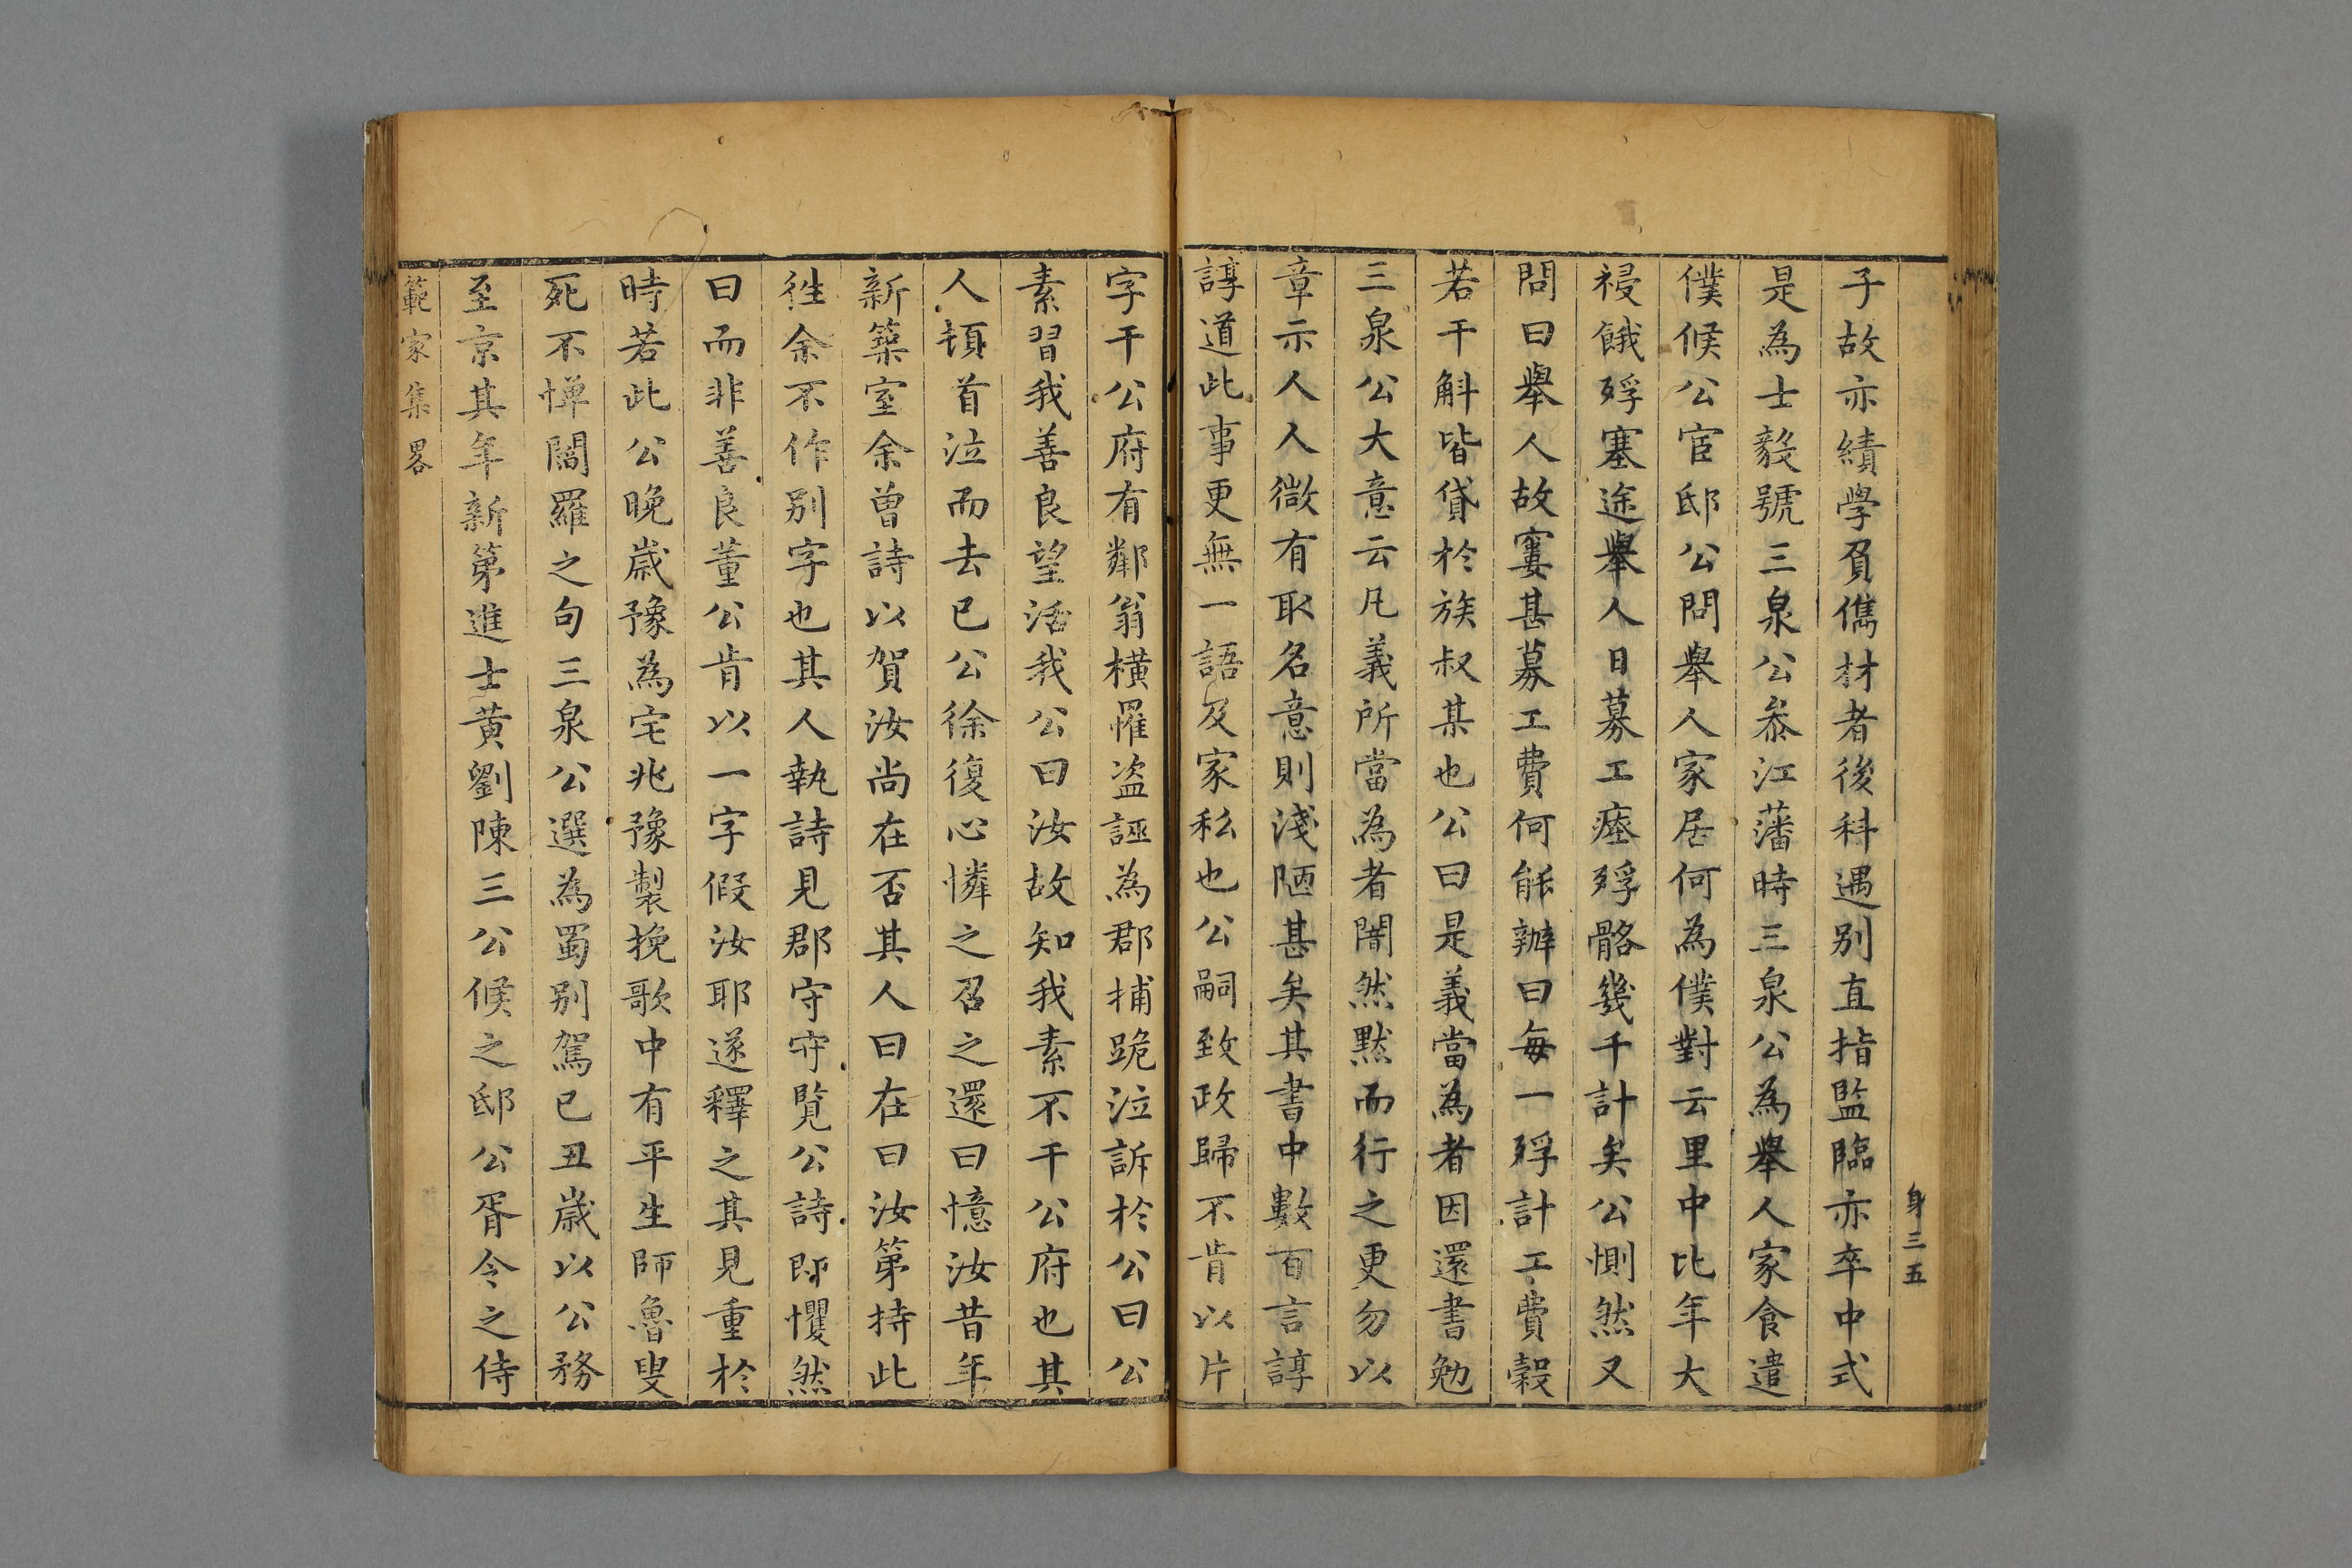 子故亦績學負儁材者後科遇別直指監臨亦卒中式
是為士毅號三泉公叅江藩時三泉公為舉人家食遣
僕候公宦邸公問舉人家居何為僕對云里中比年大
祲餓殍塞途舉人日募工瘞殍骼幾千計矣公惻然又
問曰舉人故窶甚募工費何能辦曰每一殍計工費穀
若干斛皆貸於族叔某也公曰是義當為者因還書勉
三泉公大意云凡義所當為者闇然默而行之更勿以
章示人人微有取名意則淺陋甚矣其書中數百言諄
諄道此事更無一語及家私也公嗣致政歸不肯以片
身三五
字干公府有鄰翁橫罹盜誣為郡捕跪泣訴於公曰公
素習我善良望活我公曰汝故知我素不干公府也其
人頓首泣而去已公徐復心憐之召之還曰憶汝昔年
新築室余曾詩以賀汝尚在否其人曰在曰汝第持此
徃余不作別字也其人執詩見郡守守覽公詩即懼然
曰而非善良董公肯以一字假汝耶遂釋之其見重於
時若此公晚歲豫為宅兆豫製挽歌中有平生師魯叟
死不憚閻羅之句三泉公選為蜀別駕已丑歲以公務
至京其年新第進士黃劉陳三公候之邸公胥令之侍
範家集畧